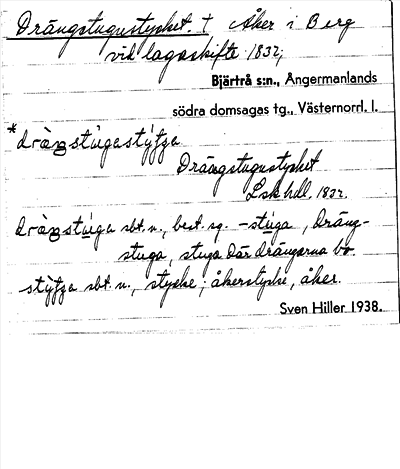 Drängstugustycket. † Åker i Berg
vid lagaskifte 1832;
Bjärtrå s:n., Ångermanlands
södra domsagas tg., Västernorrl. l.
*dràŋstùgastýʃʃa
Drängstugustycket
Lsk hdl. 1832.
dràŋstùga sbt. n., best. sg. -stùga, dräng-
stuga, stuga där drängarna bo.
stýʃʃa sbt. n., stycke; åkerstycke, åker.
Sven Hiller 1938.